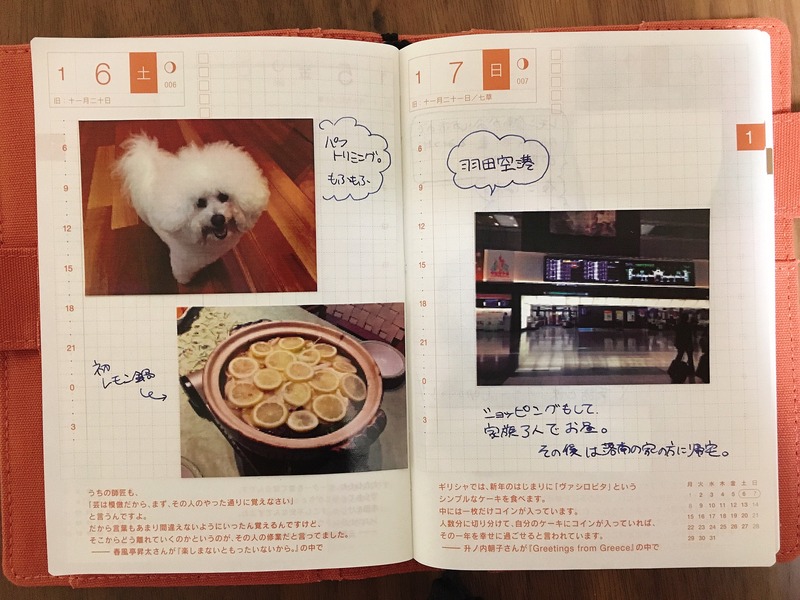 1 6 土
006
旧 十一月二十日
6
9
12
15
18
21
0
3
パフ
トリミング。
もふもふ
初
レモン鍋
うちの師匠も、
「芸は模倣だから、まず、その人のやった通りに覚えなさい」
と言うんですよ。
だから言葉もあまり間違えないようにいったん覚えるんですけど、
そこからどう離れていくのかというのが、その人の修業だと言ってました。
――春風亭昇太が『楽しまないともったいないから。』の中で
1 7 日
007
旧 十一月二十一日／七草
1
6
9
12
15
18
21
0
3
羽田空港
ショッピングもして、
家族3人でお昼。
その後は湘南の家の方に帰宅。
ギリシャでは、新年のはじまりに「ヴァシロピタ」という
シンプルなケーキを食べます。
中には一枚だけコインが入っています。
人数分に切り分けて、自分のケーキにコインが入っていれば、
その一年を幸せに過ごせると言われています。
――升ノ内朝子さんが『Greetings from Greece』の中で
月 火 水 木 金 土 日
1 2 3 4 5 6 7
8 9 10 11 12 13 14
15 16 17 18 19 20 21
22 23 24 25 26 27 28
29 30 31